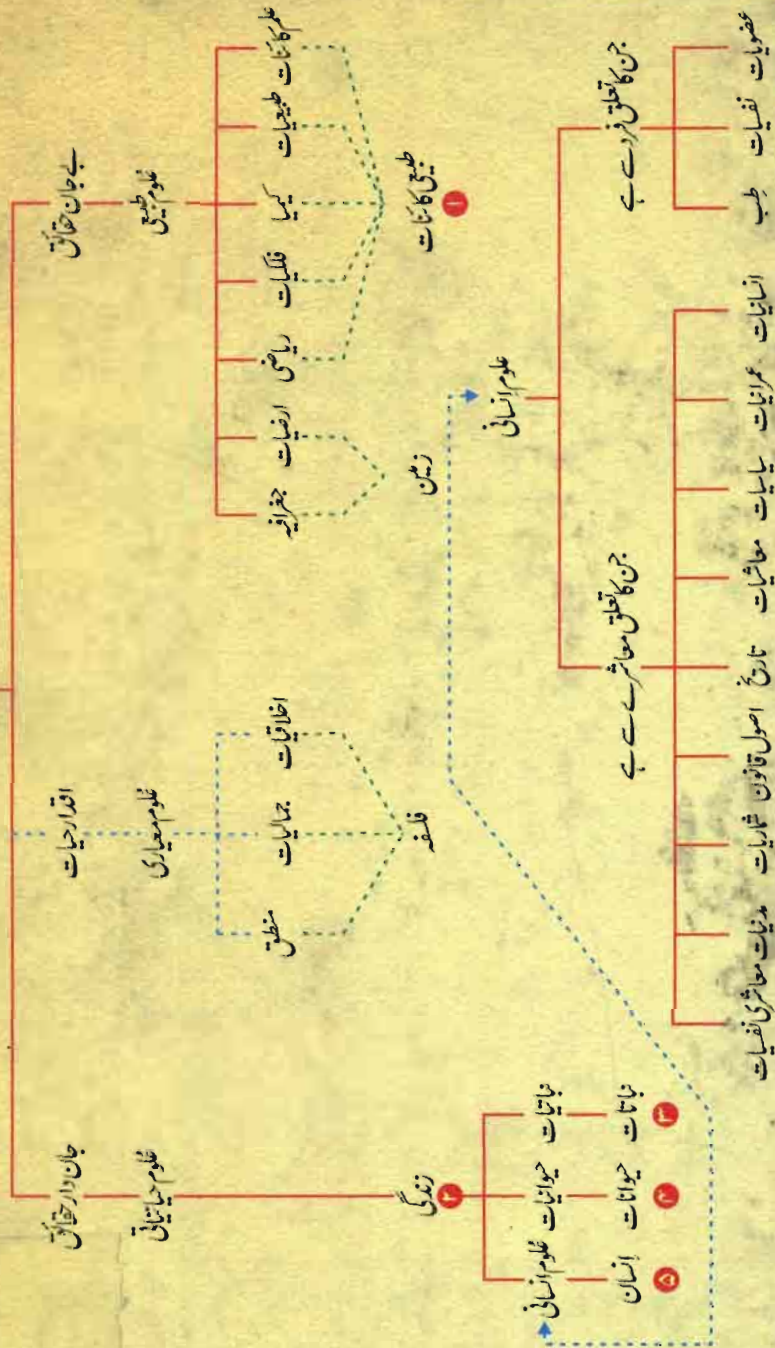 بے جان حقائق
علوم طبیعی
علم کائنات طبیعیات کیمیا فلکیات ریاضی ارضیات جغرافیہ
طبیعی کائنات
۱
زمین
اقدار حیات
علوم معیاری
اخلاقیات جمالیات منطق
فلسفہ
جان دار حقائق
علوم حیاتیاتی
زندگی
۲
نباتیات حیوانیات علوم انسانی
نباتات حیوانات انسان
۳ ۴ ۵
علوم انسانی
جن کا تعلق فرد سے ہے
عضویات نفسیات طب
جن کا تعلق معاشرے سے ہے
انسانیات عمرانیات سیاسیات معاشیات تاریخ اصول قانون شماریات مدنیات معاشری نفسیات